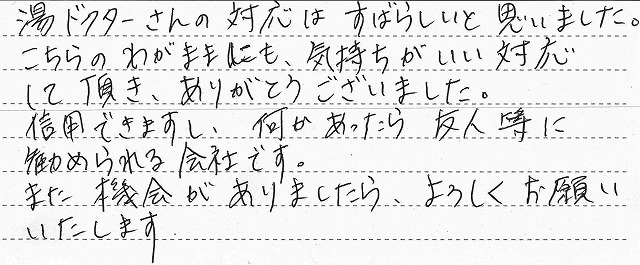 湯ドクターさんの対応はすばらしいと思いました。
こちらのわがままにも、気持ちがいい対応
して頂き、ありがとうございました。
信用できますし、何かあったら友人等に
勧められる会社です。
また機会がありましたら、よろしくお願い
いたします